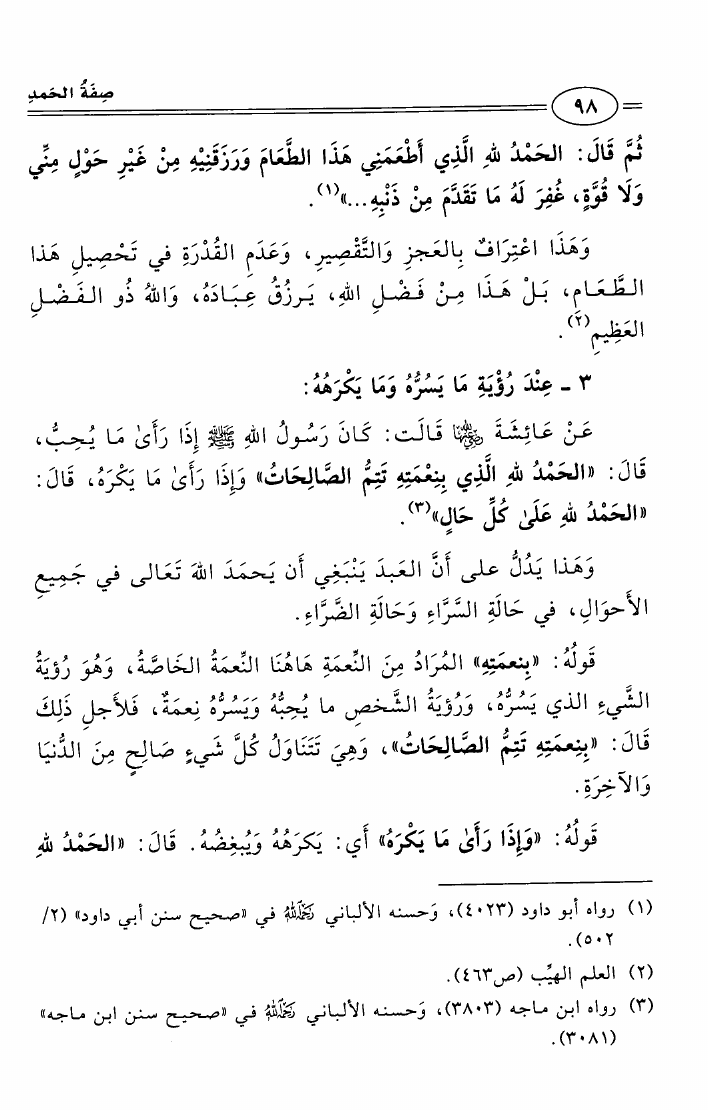 صِفَةُ الحَمدِ
٩٨
ثُمَّ قَالَ: الحَمْدُ للهِ الَّذِي أَطْعَمَنِي هَذَا الطَّعَامَ وَرَزَقَنِيْهِ مِنْ غَيْرِ حَوْلٍ مِنِّي
وَلَا قُوَّةٍ، غُفِرَ لَهُ مَا تَقَدَّمَ مِنْ ذَنْبِهِ...»(١).
وَهَذَا اعْتِرَافٌ بِالعَجزِ وَالتَّقْصِيرِ، وَعَدَمِ القُدْرَةِ في تَحْصِيلِ هَذا
الطَّعَامِ، بَلْ هَذَا مِنْ فَضْلِ اللهِ، يَرزُقُ عِبَادَهُ، وَاللهُ ذُو الفَضْلِ
العَظِيمِ(٢).
٣ - عِنْدَ رُؤْيَةِ مَا يَسُرُّهُ وَمَا يَكْرَهُهُ:
عَنْ عَائِشَةَ رضي الله عنها قَالَت: كَانَ رَسُولُ اللهِ ﷺ إِذَا رَأَىٰ مَا يُحِبُّ،
قَالَ: «الحَمْدُ للهِ الَّذِي بِنِعْمَتِهِ تَتِمُّ الصَّالِحَاتُ» وَإِذَا رَأَىٰ مَا يَكْرَهُ، قَالَ:
«الحَمْدُ للهِ عَلَىٰ كُلِّ حَالٍ»(٣).
وَهَذا يَدُلُّ على أَنَّ العَبدَ يَنْبَغِي أَن يَحمَدَ اللهَ تَعَالى في جَمِيعِ
الأَحوَالِ، في حَالَةِ السَّرَّاءِ وَحَالَةِ الضَّرَّاءِ.
قَولُهُ: «بِنِعمَتِهِ» المُرَادُ مِنَ النِّعمَةِ هَاهُنَا النِّعمَةُ الخَاصَّةُ، وَهُوَ رُؤيَةُ
الشَّيءِ الذي يَسُرُّهُ، وَرُؤيَةُ الشَّخصِ ما يُحِبُّهُ وَيَسُرُّهُ نِعمَةٌ، فَلأَجلِ ذَلِكَ
قَالَ: «بِنِعمَتِهِ تَتِمُّ الصَّالِحَاتُ»، وَهِيَ تَتَنَاوَلُ كُلَّ شَيءٍ صَالِحٍ مِنَ الدُّنيَا
وَالآخِرَةِ.
قَولُهُ: «وَإِذَا رَأَىٰ مَا يَكْرَهُ» أَي: يَكرَهُهُ وَيُبغِضُهُ. قَالَ: «الحَمْدُ للهِ
(١) رواه أبو داود (٤٠٢٣)، وَحسنه الألباني رَحِمَهُ اللهُ في «صحيح سنن أبي داود» (٢/
٥٠٢).
(٢) العلم الهيِّب (ص٤٦٣).
(٣) رواه ابن ماجه (٣٨٠٣)، وَحسنه الألباني رَحِمَهُ اللهُ في «صحيح سنن ابن ماجه»
(٣٠٨١).